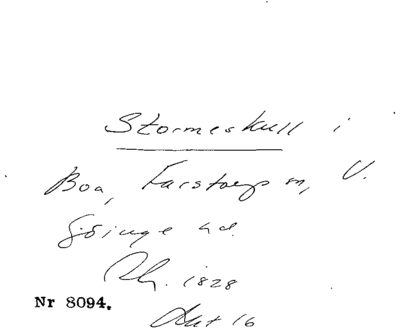 Stormeskull i
Boa, Farstorp sn, V.
Göinge hd.
Dr. 1828
Nr 8094.
Akt 16